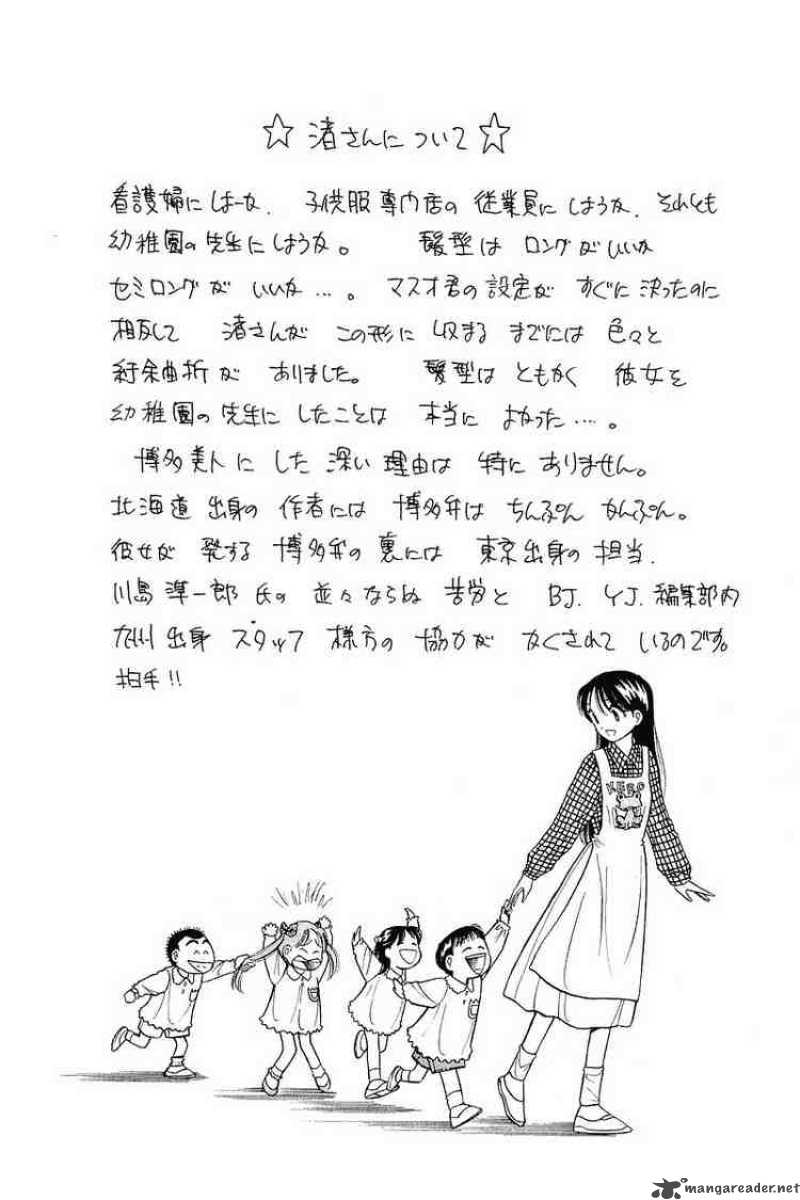 ☆ 渚さんについて ☆
看護婦にしよーか、 子供服専門店の 従業員に しようか、 それとも
幼稚園の先生にしようか。 髪型は ロングがいいか
セミロングが いいか…。 マスオ君の設定が すぐに決ったのに
相反して 渚さんが この形に 収まる までには 色々と
紆余曲折が ありました。 髪型は ともかく 彼女を
幼稚園の先生に したことは 本当に よかった…。
博多美人に した 深い 理由は 特に ありません。
北海道 出身の 作者には 博多弁は ちんぷん かんぷん。
彼女が 発する 博多弁の 裏には 東京出身の 担当、
川島 準一郎 氏の 並々ならぬ 苦労と BJ. YJ. 編集部内
九州 出身 スタッフ 様方の 協力が かくされて いるのです。
拍手!!
KERO
mangareader.net